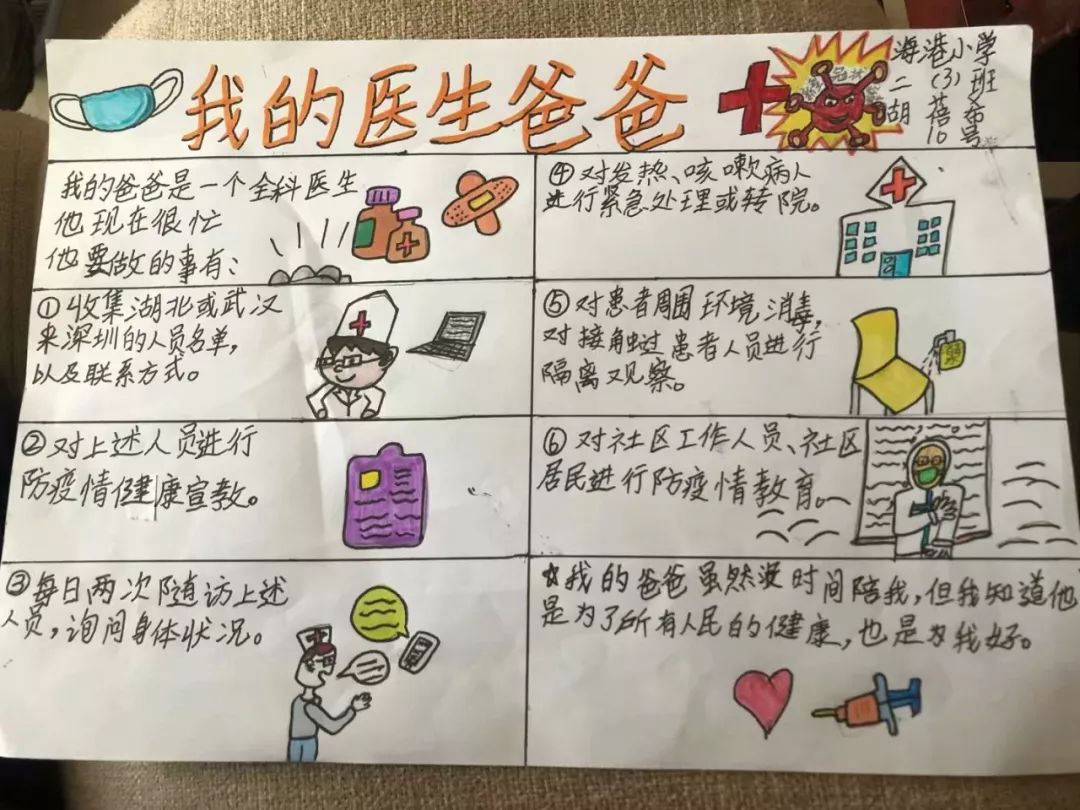 我的医生爸爸
海港小学
二（3）班
胡蓓希
10号
我的爸爸是一个全科医生
他现在很忙
他要做的事有：
①收集湖北或武汉
来深圳的人员名单，
以及联系方式。
②对上述人员进行
防疫情健康宣教。
③每日两次随访上述
人员，询问身体状况。
④对发热、咳嗽病人
进行紧急处理或转院。
⑤对患者周围环境消毒，
对接触过患者人员进行
隔离观察。
⑥对社区工作人员、社区
居民进行防疫情教育。
☆我的爸爸虽然没时间陪我，但我知道他
是为了所有人民的健康，也是为我好。